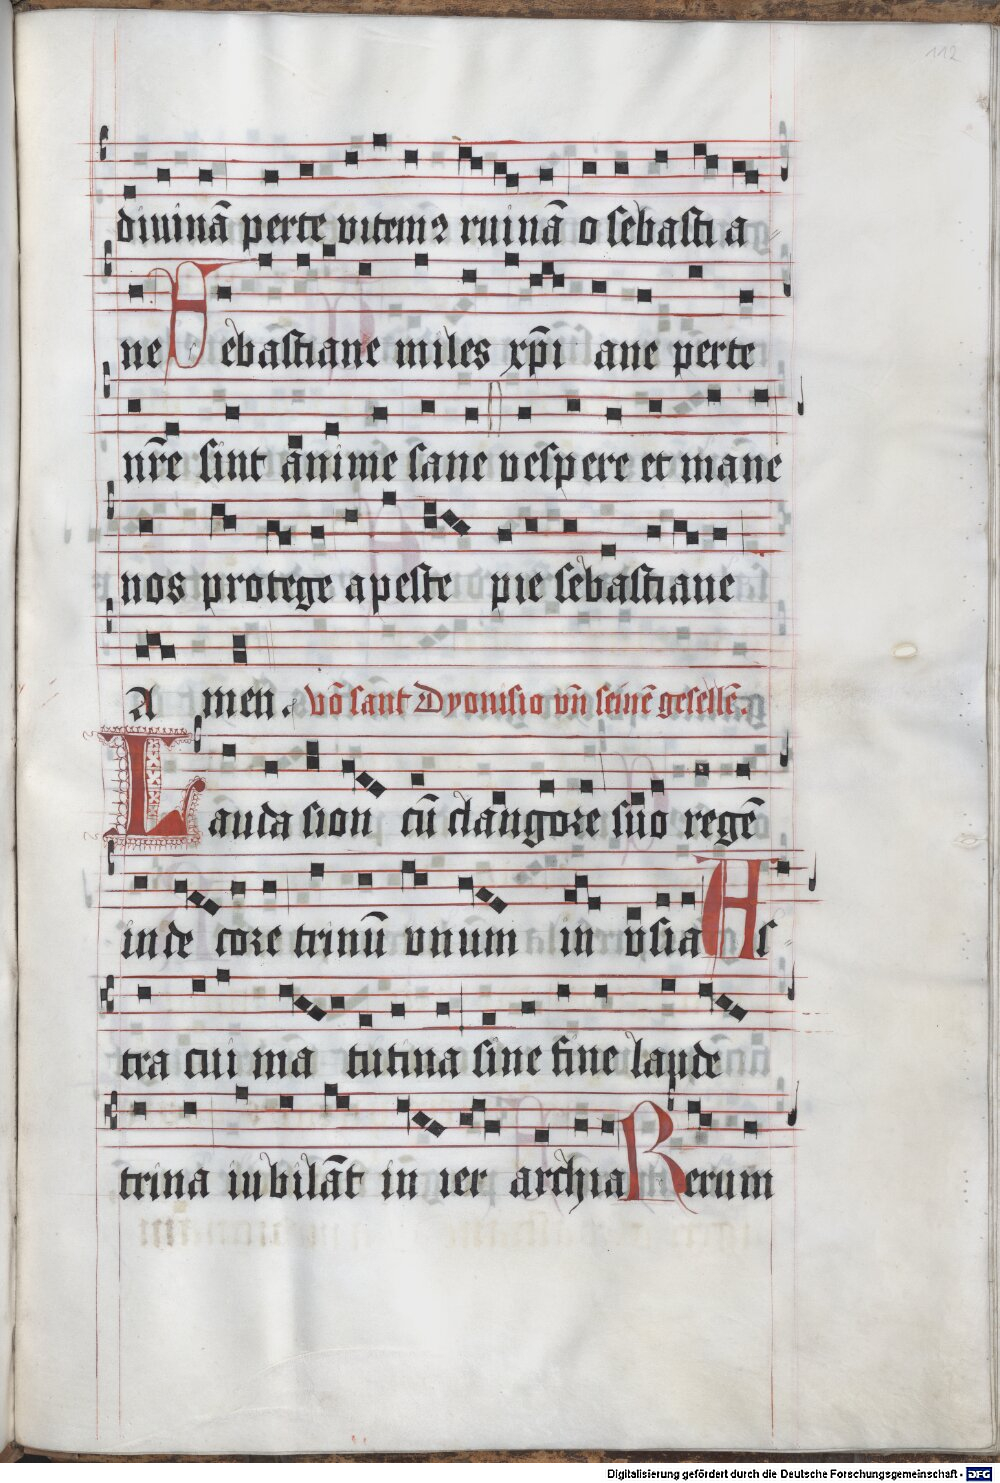 112
diuinā perte vitemꝰ ruinā o sebasti a
ne Sebastiane miles xp̄i ane perte
nr̄e sint anime sane vespere et mane
nos protege a peste pie sebastiane
A men. vō sant Dyonisio vn̄ seinē geselle.
Lauda sion cū clangore suo regē
inde core trinū vnum in vsia As
tra cui ma tutina sine fine laude
trina iubilāt in ier archia Rerum
Digitalisierung gefördert durch die Deutsche Forschungsgemeinschaft - DFG